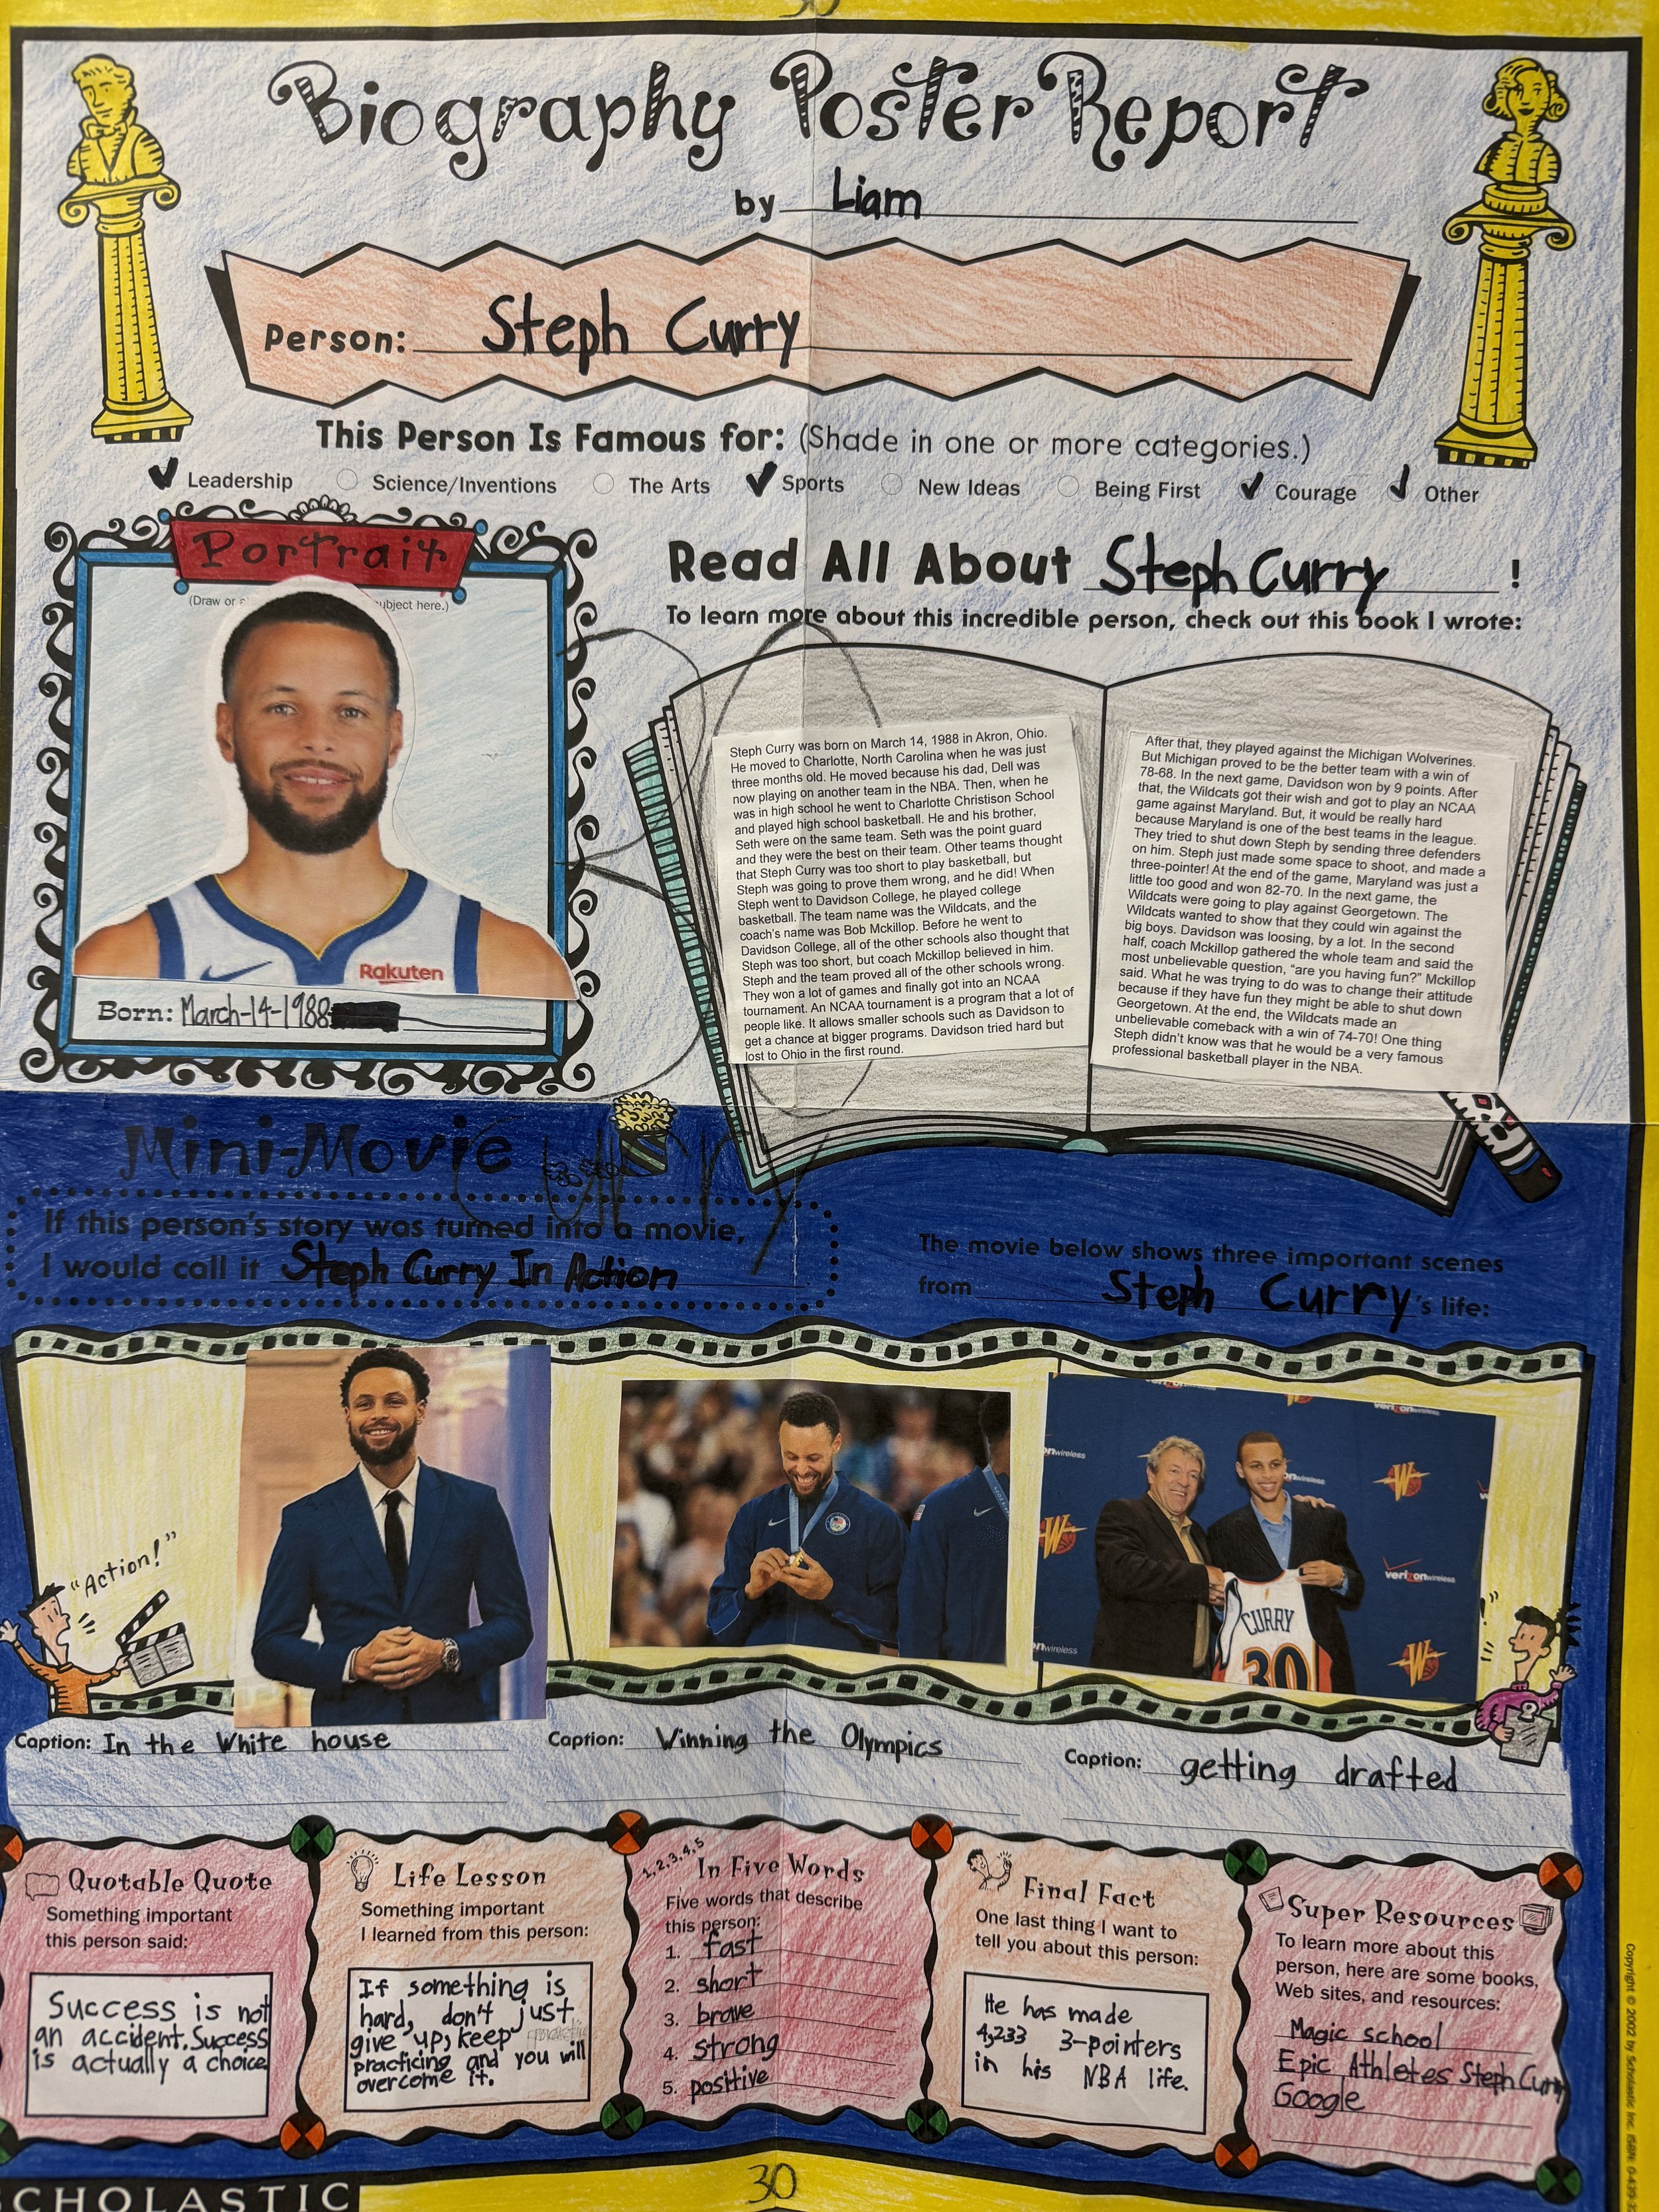 30
Biography Poster Report
by Liam
Person: Steph Curry
This Person Is Famous for: (Shade in one or more categories.)
Leadership Science/Inventions The Arts Sports New Ideas Being First Courage Other
Portrait
(Draw or a ubject here.)
Rakuten
Born: March-14-1988
Read All About Steph Curry!
To learn more about this incredible person, check out this book I wrote:
Steph Curry was born on March 14, 1988 in Akron, Ohio.
He moved to Charlotte, North Carolina when he was just
three months old. He moved because his dad, Dell was
now playing on another team in the NBA. Then, when he
was in high school he went to Charlotte Christison School
and played high school basketball. He and his brother,
Seth were on the same team. Seth was the point guard
and they were the best on their team. Other teams thought
that Steph Curry was too short to play basketball, but
Steph was going to prove them wrong, and he did! When
Steph went to Davidson College, he played college
basketball. The team name was the Wildcats, and the
coach's name was Bob Mckillop. Before he went to
Davidson College, all of the other schools also thought that
Steph was too short, but coach Mckillop believed in him.
Steph and the team proved all of the other schools wrong.
They won a lot of games and finally got into an NCAA
tournament. An NCAA tournament is a program that a lot of
people like. It allows smaller schools such as Davidson to
get a chance at bigger programs. Davidson tried hard but
lost to Ohio in the first round.
After that, they played against the Michigan Wolverines.
But Michigan proved to be the better team with a win of
78-68. In the next game, Davidson won by 9 points. After
that, the Wildcats got their wish and got to play an NCAA
game against Maryland. But, it would be really hard
because Maryland is one of the best teams in the league.
They tried to shut down Steph by sending three defenders
on him. Steph just made some space to shoot, and made a
three-pointer! At the end of the game, Maryland was just a
little too good and won 82-70. In the next game, the
Wildcats were going to play against Georgetown. The
Wildcats wanted to show that they could win against the
big boys. Davidson was loosing, by a lot. In the second
half, coach Mckillop gathered the whole team and said the
most unbelievable question, "are you having fun?" Mckillop
said. What he was trying to do was to change their attitude
because if they have fun they might be able to shut down
Georgetown. At the end, the Wildcats made an
unbelievable comeback with a win of 74-70! One thing
Steph didn't know was that he would be a very famous
professional basketball player in the NBA.
Mini-Movie
Curry
If this person's story was turned into a movie,
I would call it Steph Curry In Action
The movie below shows three important scenes
from Steph Curry's life:
"Action!"
verizonwireless
onwireless
onwireless
W
verizonwireless
onwireless
CURRY
30
Caption: In the White house
Caption: Winning the Olympics
Caption: getting drafted
Quotable Quote
Something important
this person said:
Success is not
an accident. Success
is actually a choice
Life Lesson
Something important
I learned from this person:
If something is
hard, don't just
give up, keep
practicing and you will
overcome it.
1, 2, 3, 4, 5
In Five Words
Five words that describe
this person:
1. fast
2. short
3. brave
4. strong
5. positive
Final Fact
One last thing I want to
tell you about this person:
He has made
4,233 3-pointers
in his NBA life.
Super Resources
To learn more about this
person, here are some books,
Web sites, and resources:
Magic school
Epic Athletes Steph Curry
Google
Copyright © 2002 by Scholastic Inc. ISBN: 0-439-
SCHOLASTIC
30